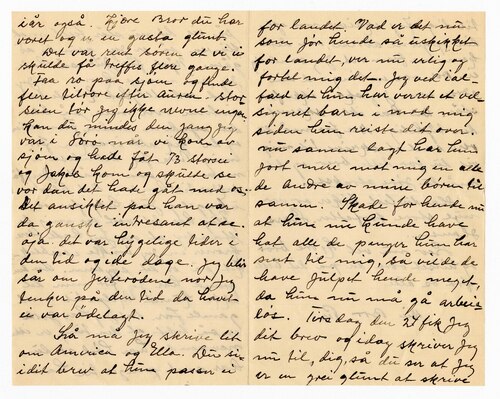 i år også. Kjære Bror du har
voret og is en gasta glunt.
Det var rene Sören at vi ei
skulde få treffis flere gange.
Faa ro paa sjøen og finde
flere tilröre efter Auren. Stor
seien tør jeg ikke nevne engang
kan du mindes den gang jeg
var i Sörö når vi kom av
sjøen og hade fåt 13 storsei
og Jakob kom og skulde se
vor dan det hade gåt med os.
Det ansiktet paa han var
da ganske intresant at se.
åja. det var hyggelige tider i
den tid og ide dage. Jeg blir
sår om jerterödene når jeg
tenker på den tid da havet
ei var ödelagt.
Så må jeg skrive lit
om America og Ulla. Du si
i dit brev at hun passer ei
for landet. Vad er det nu
som gör hende så uskikket
for landet, ver nu erlig og
fortel mig det. Jeg ved ial-
fald at hun har verdet et vel-
signet barn i mod mig
siden hun reiste dit over.
nu samen lagt har hun
gort mere mot mig en alle
de andre av mine bören til
samen. Skade for hende nu
at hun nu kunde have
hat alle de penger hun har
sent til mig, så vilde de
have julpet hende meget,
da hun nu må gå arbeis-
lös. Tirsdag den 24 fik jeg
dit brev og idag skriver jeg
nu til, dig, så du ser at jeg
er en grei glunt at skrive